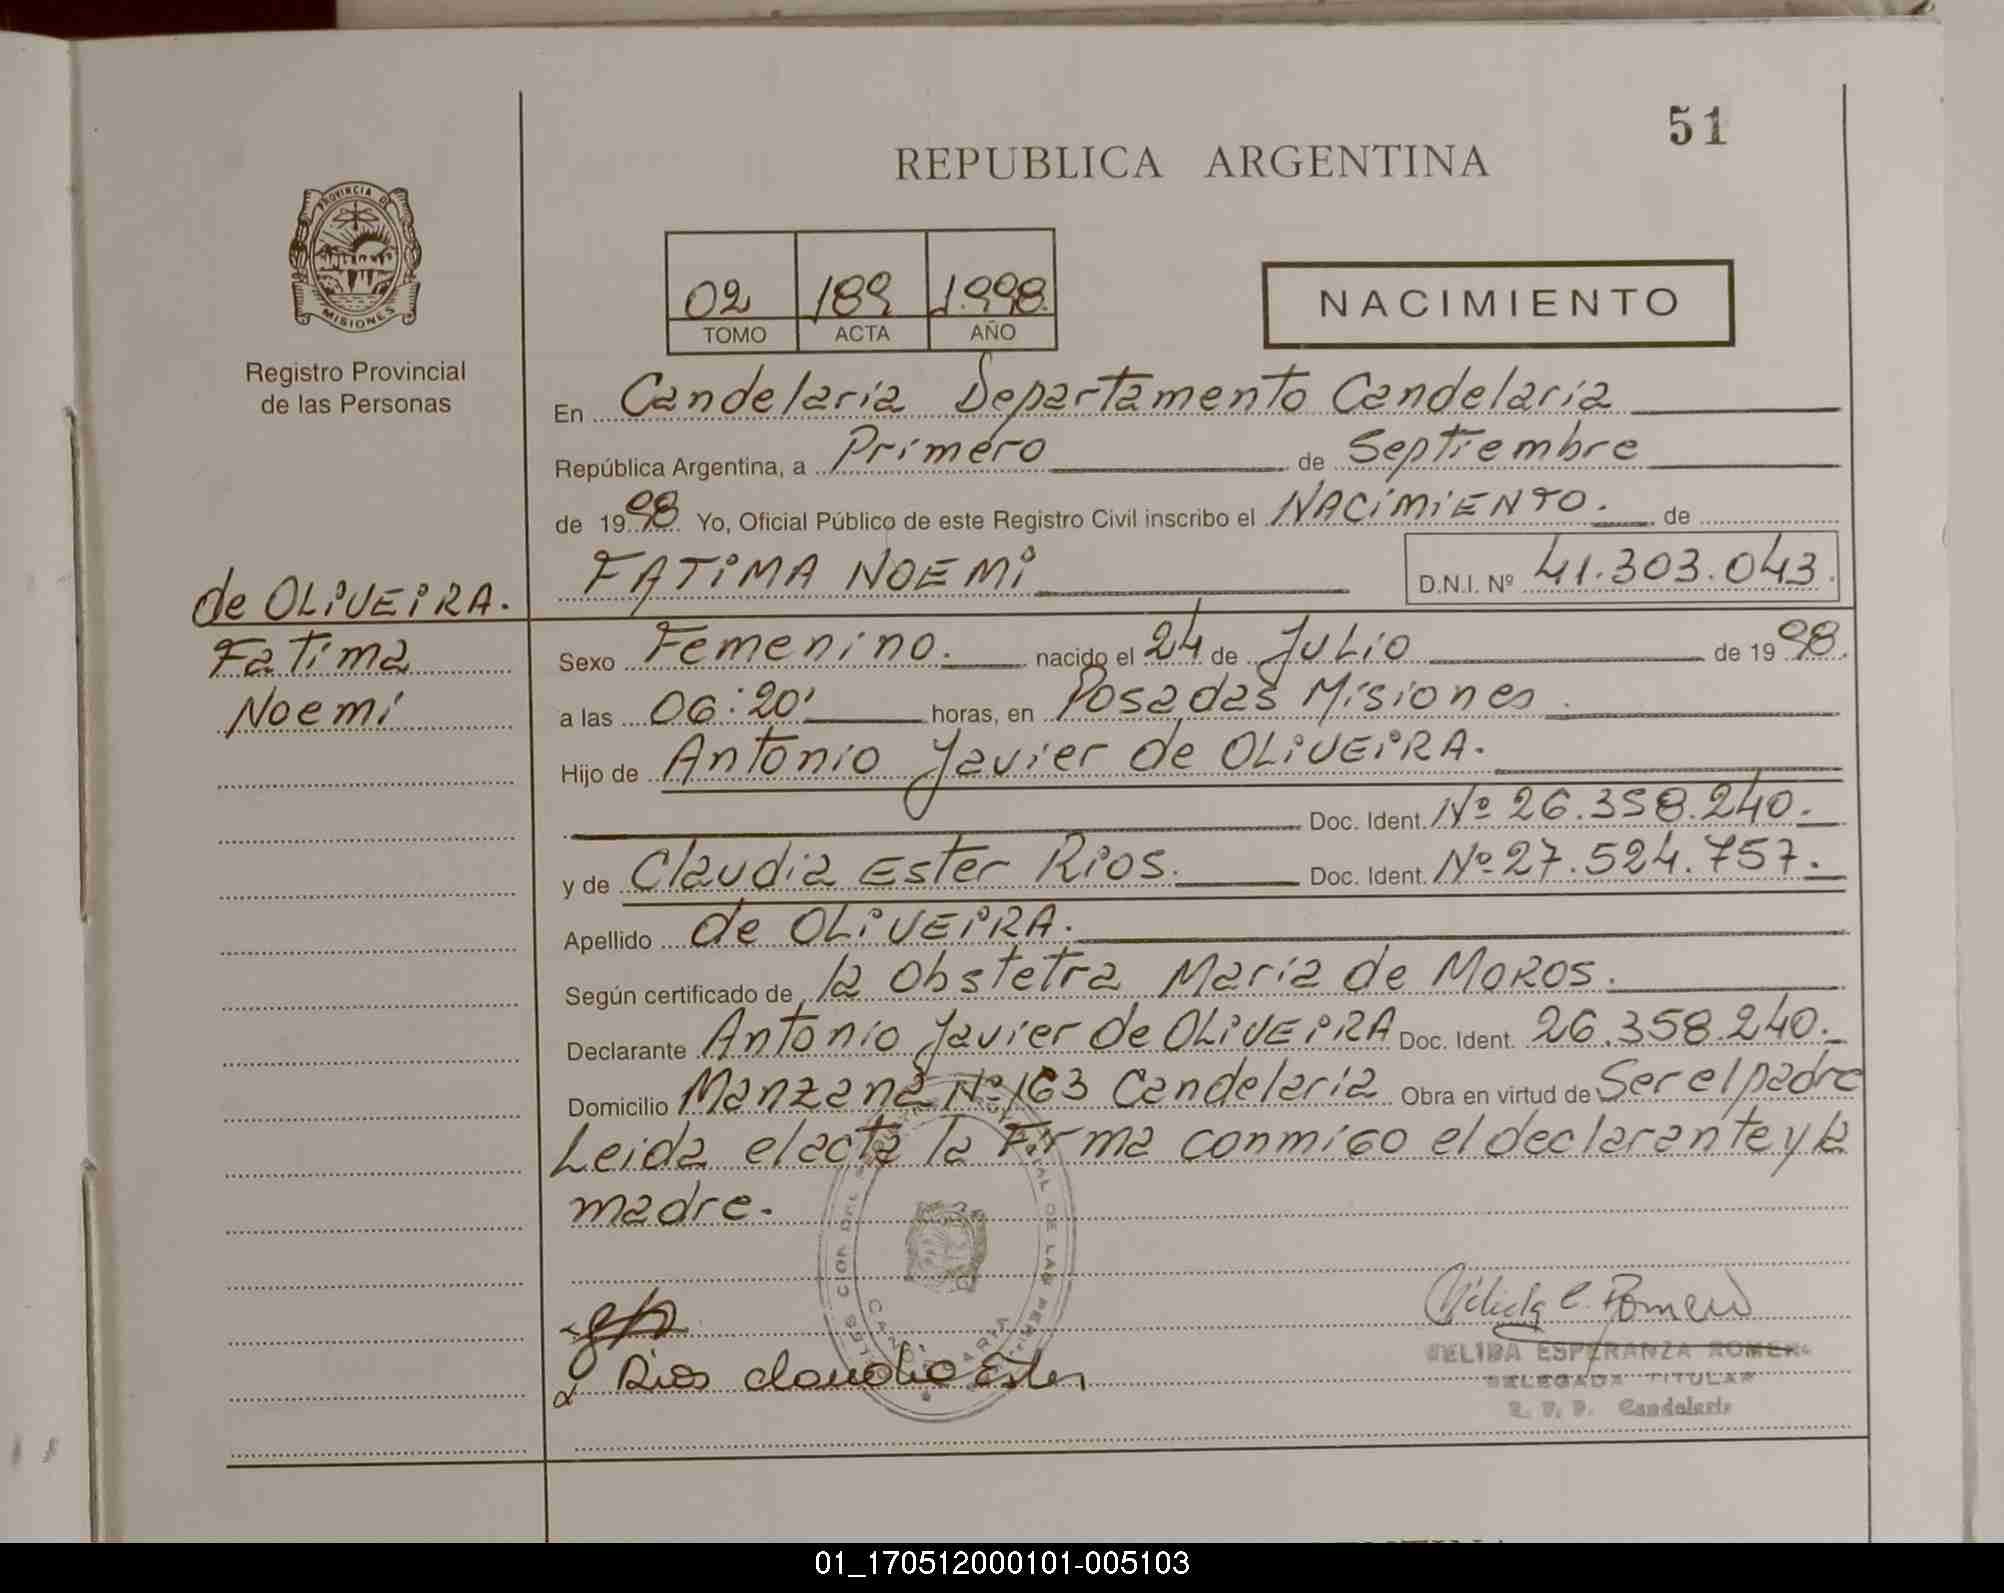 51
REPUBLICA ARGENTINA
PROVINCIA DE
MISIONES
Registro Provincial
de las Personas
02 189 1.998.
TOMO ACTA AÑO
NACIMIENTO
En Candelaria Departamento Candelaria
República Argentina, a Primero de Septiembre
de 1998. Yo, Oficial Público de este Registro Civil inscribo el NACIMIENTO. de
FATIMA NOEMI D.N.I. Nº 41.303.043.
de OLIVEIRA.
Fatima
Noemi
Sexo Femenino. nacido el 24 de Julio de 1998.
a las 06:20' horas, en Posadas Misiones.
Hijo de Antonio Javier de OLIVEIRA.
Doc. Ident. Nº 26.358.240.
y de Claudia Ester Rios. Doc. Ident. Nº 27.524.757.
Apellido de OLIVEIRA.
Según certificado de la Obstetra Maria de MOROS.
Declarante Antonio Javier de OLIVEIRA Doc. Ident. 26.358.240.
Domicilio Manzana Nº 163 Candelaria Obra en virtud de Ser el padre
Leida el acta la Firma conmigo el declarante y la
madre.
Rios Claudia Ester
ESPERANZA ROMERO
DELEGADA TITULAR
R. P. P. Candelaria
01_170512000101-005103